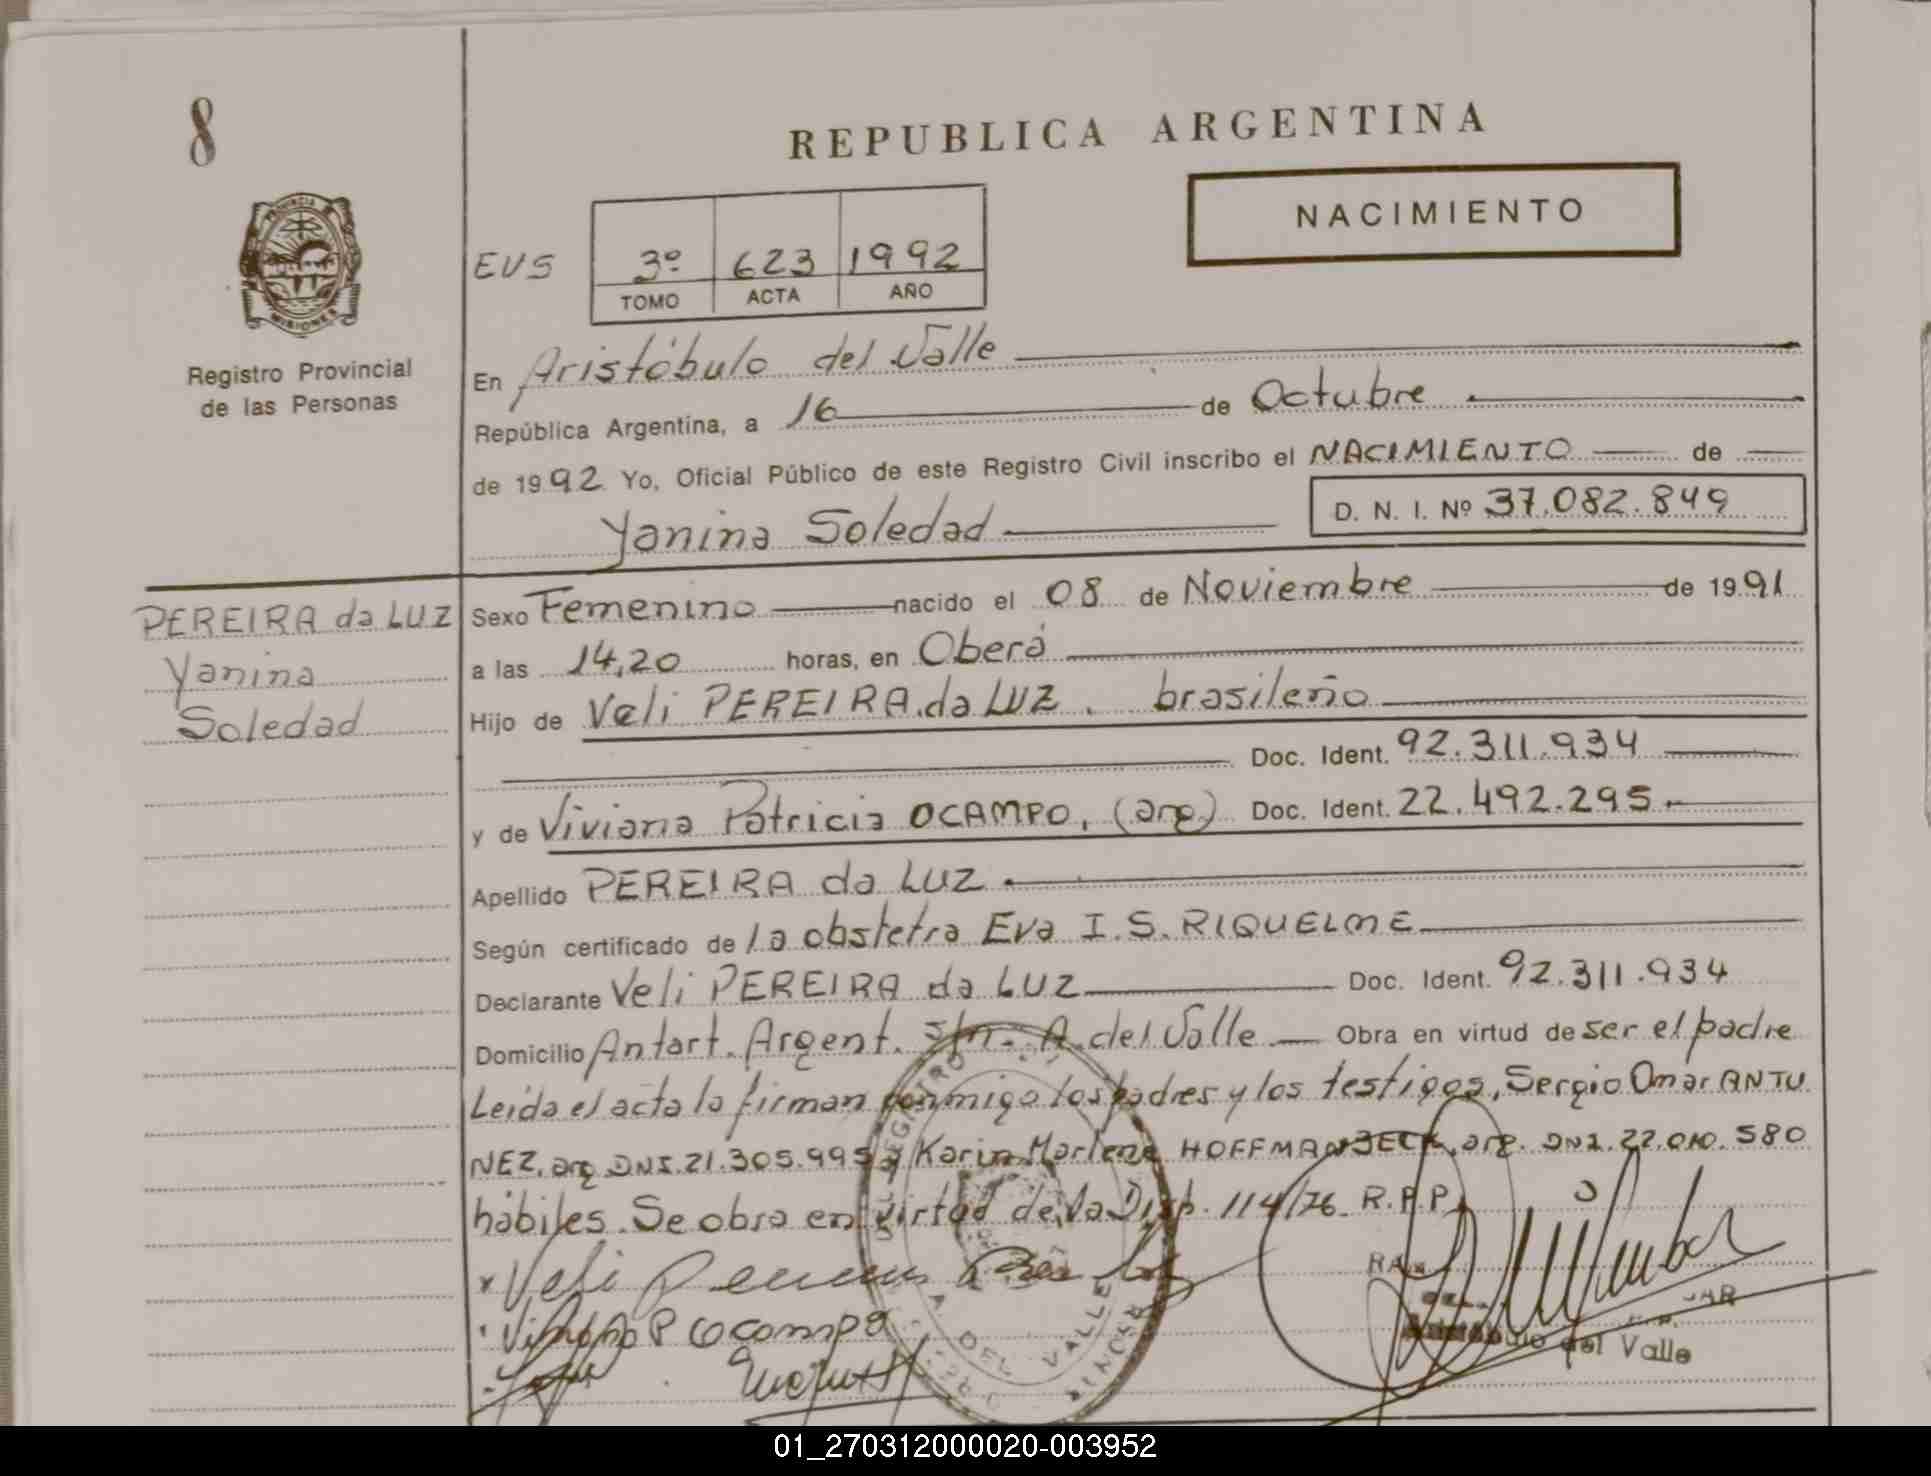 8
REPUBLICA ARGENTINA
NACIMIENTO
PROVINCIA
MISIONES
Registro Provincial
de las Personas
EVS
3º 623 1992
TOMO ACTA AÑO
En Aristóbulo del Valle
República Argentina, a 16 de Octubre
de 1992 Yo, Oficial Público de este Registro Civil inscribo el NACIMIENTO de
D. N. I. Nº 37.082.849
Yanina Soledad
PEREIRA da LUZ
Yanina
Soledad
Sexo Femenino nacido el 08 de Noviembre de 1991
a las 14,20 horas, en Oberá
Hijo de Veli PEREIRA da LUZ, brasileño
Doc. Ident. 92.311.934
y de Viviana Patricia OCAMPO, (arg) Doc. Ident. 22.492.295.-
Apellido PEREIRA da LUZ.
Según certificado de la obstetra Eva I.S. RIQUELME
Declarante Veli PEREIRA da LUZ Doc. Ident. 92.311.934
Domicilio Antart. Argent. s/n.- A. del Valle Obra en virtud de ser el padre
Leída el acta la firman conmigo los padres y los testigos, Sergio Omar ANTU
NEZ, arg DNI. 21.305.995 y Karin Marlene HOFFMANBECK, arg. DNI. 22.010.580
hábiles. Se obra en virtud de la Disp. 114/76. R.P.P.
Veli
Viviana P Ocampo
DEL VALLE
del Valle
01_270312000020-003952